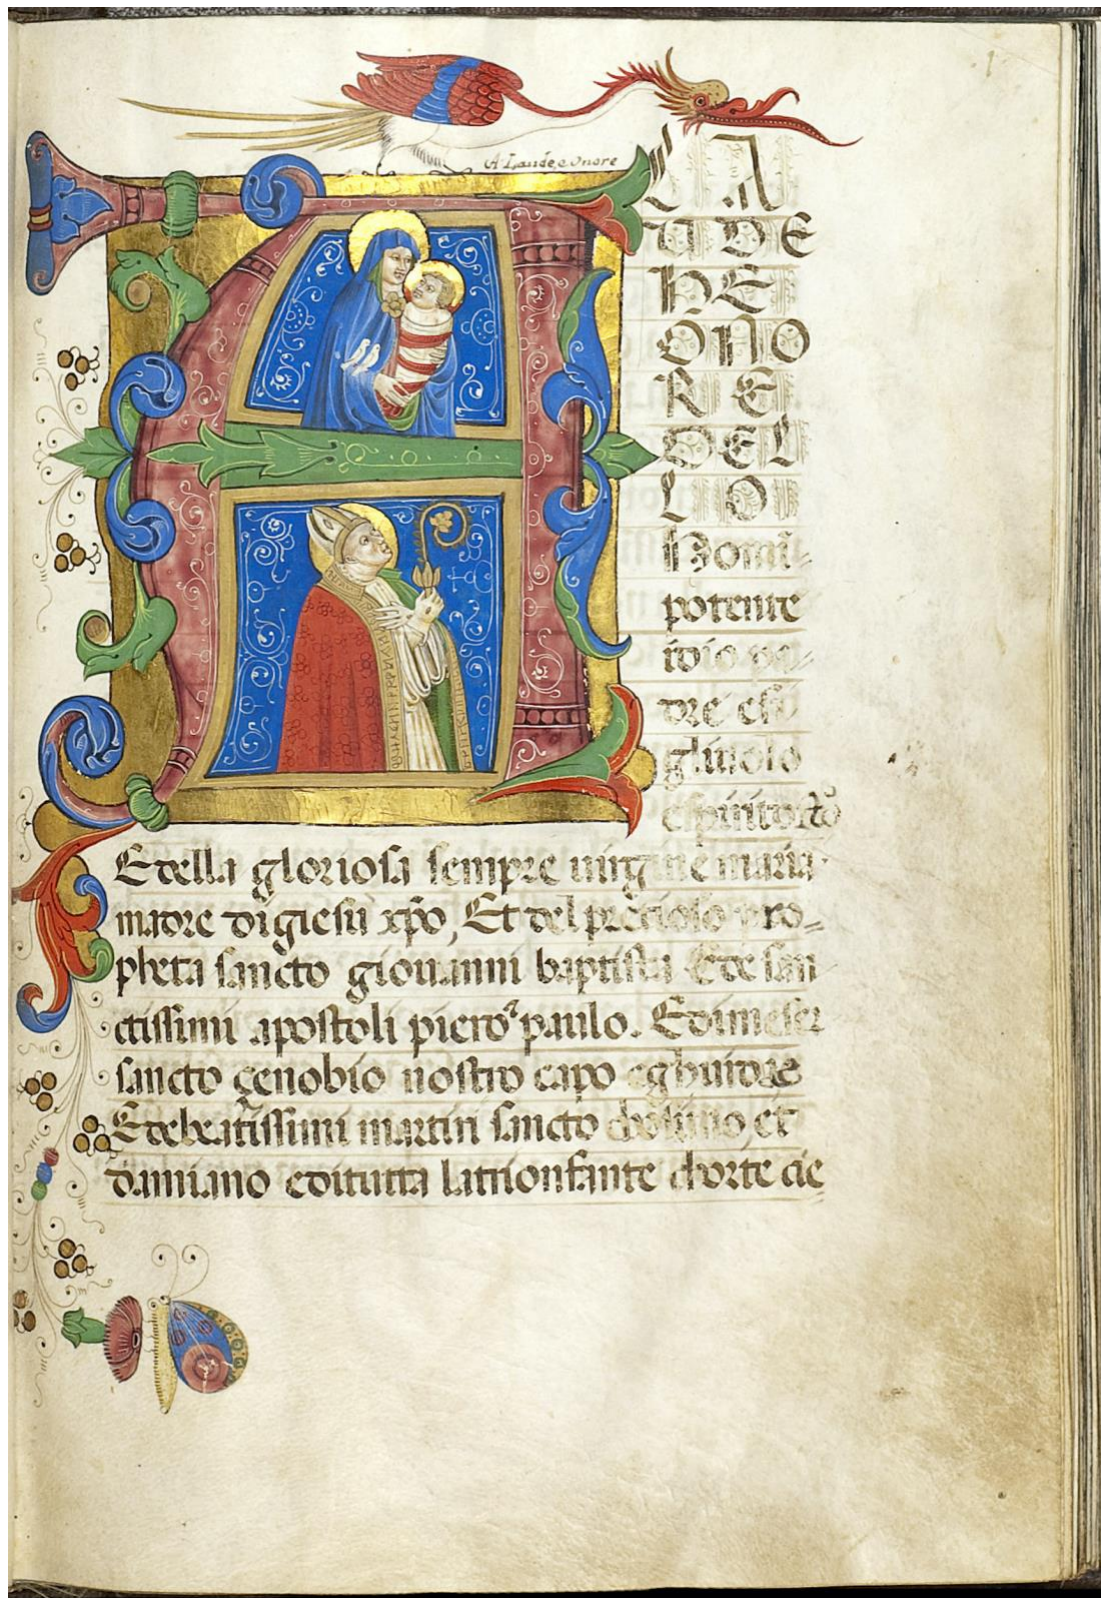 1
A Laude e Onore
LA
UDE
HE
ONO
RE
DEL
LO
si Domi-
potente
idio pa-
dre e fi
gliuolo
espirito sčo
E della gloriosa sempre uirgine maria
madre digiesu xp̄o, Et del precioso pro-
pheta sancto giouanni baptista E de san
ctissimi apostoli piero ⁊ paulo. E di meser
sancto çenobio nostro capo e ghuidare
E de beatissimi martiri sancto et
damiano e di tutta la trionfante chorte cie